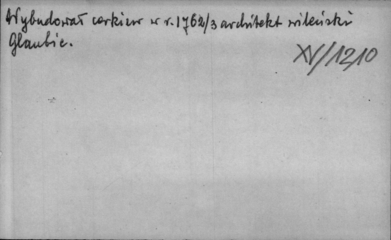 Wybudował cerkiew w r. 1762/3 architekt wileński
Glaubic.
XV/1210